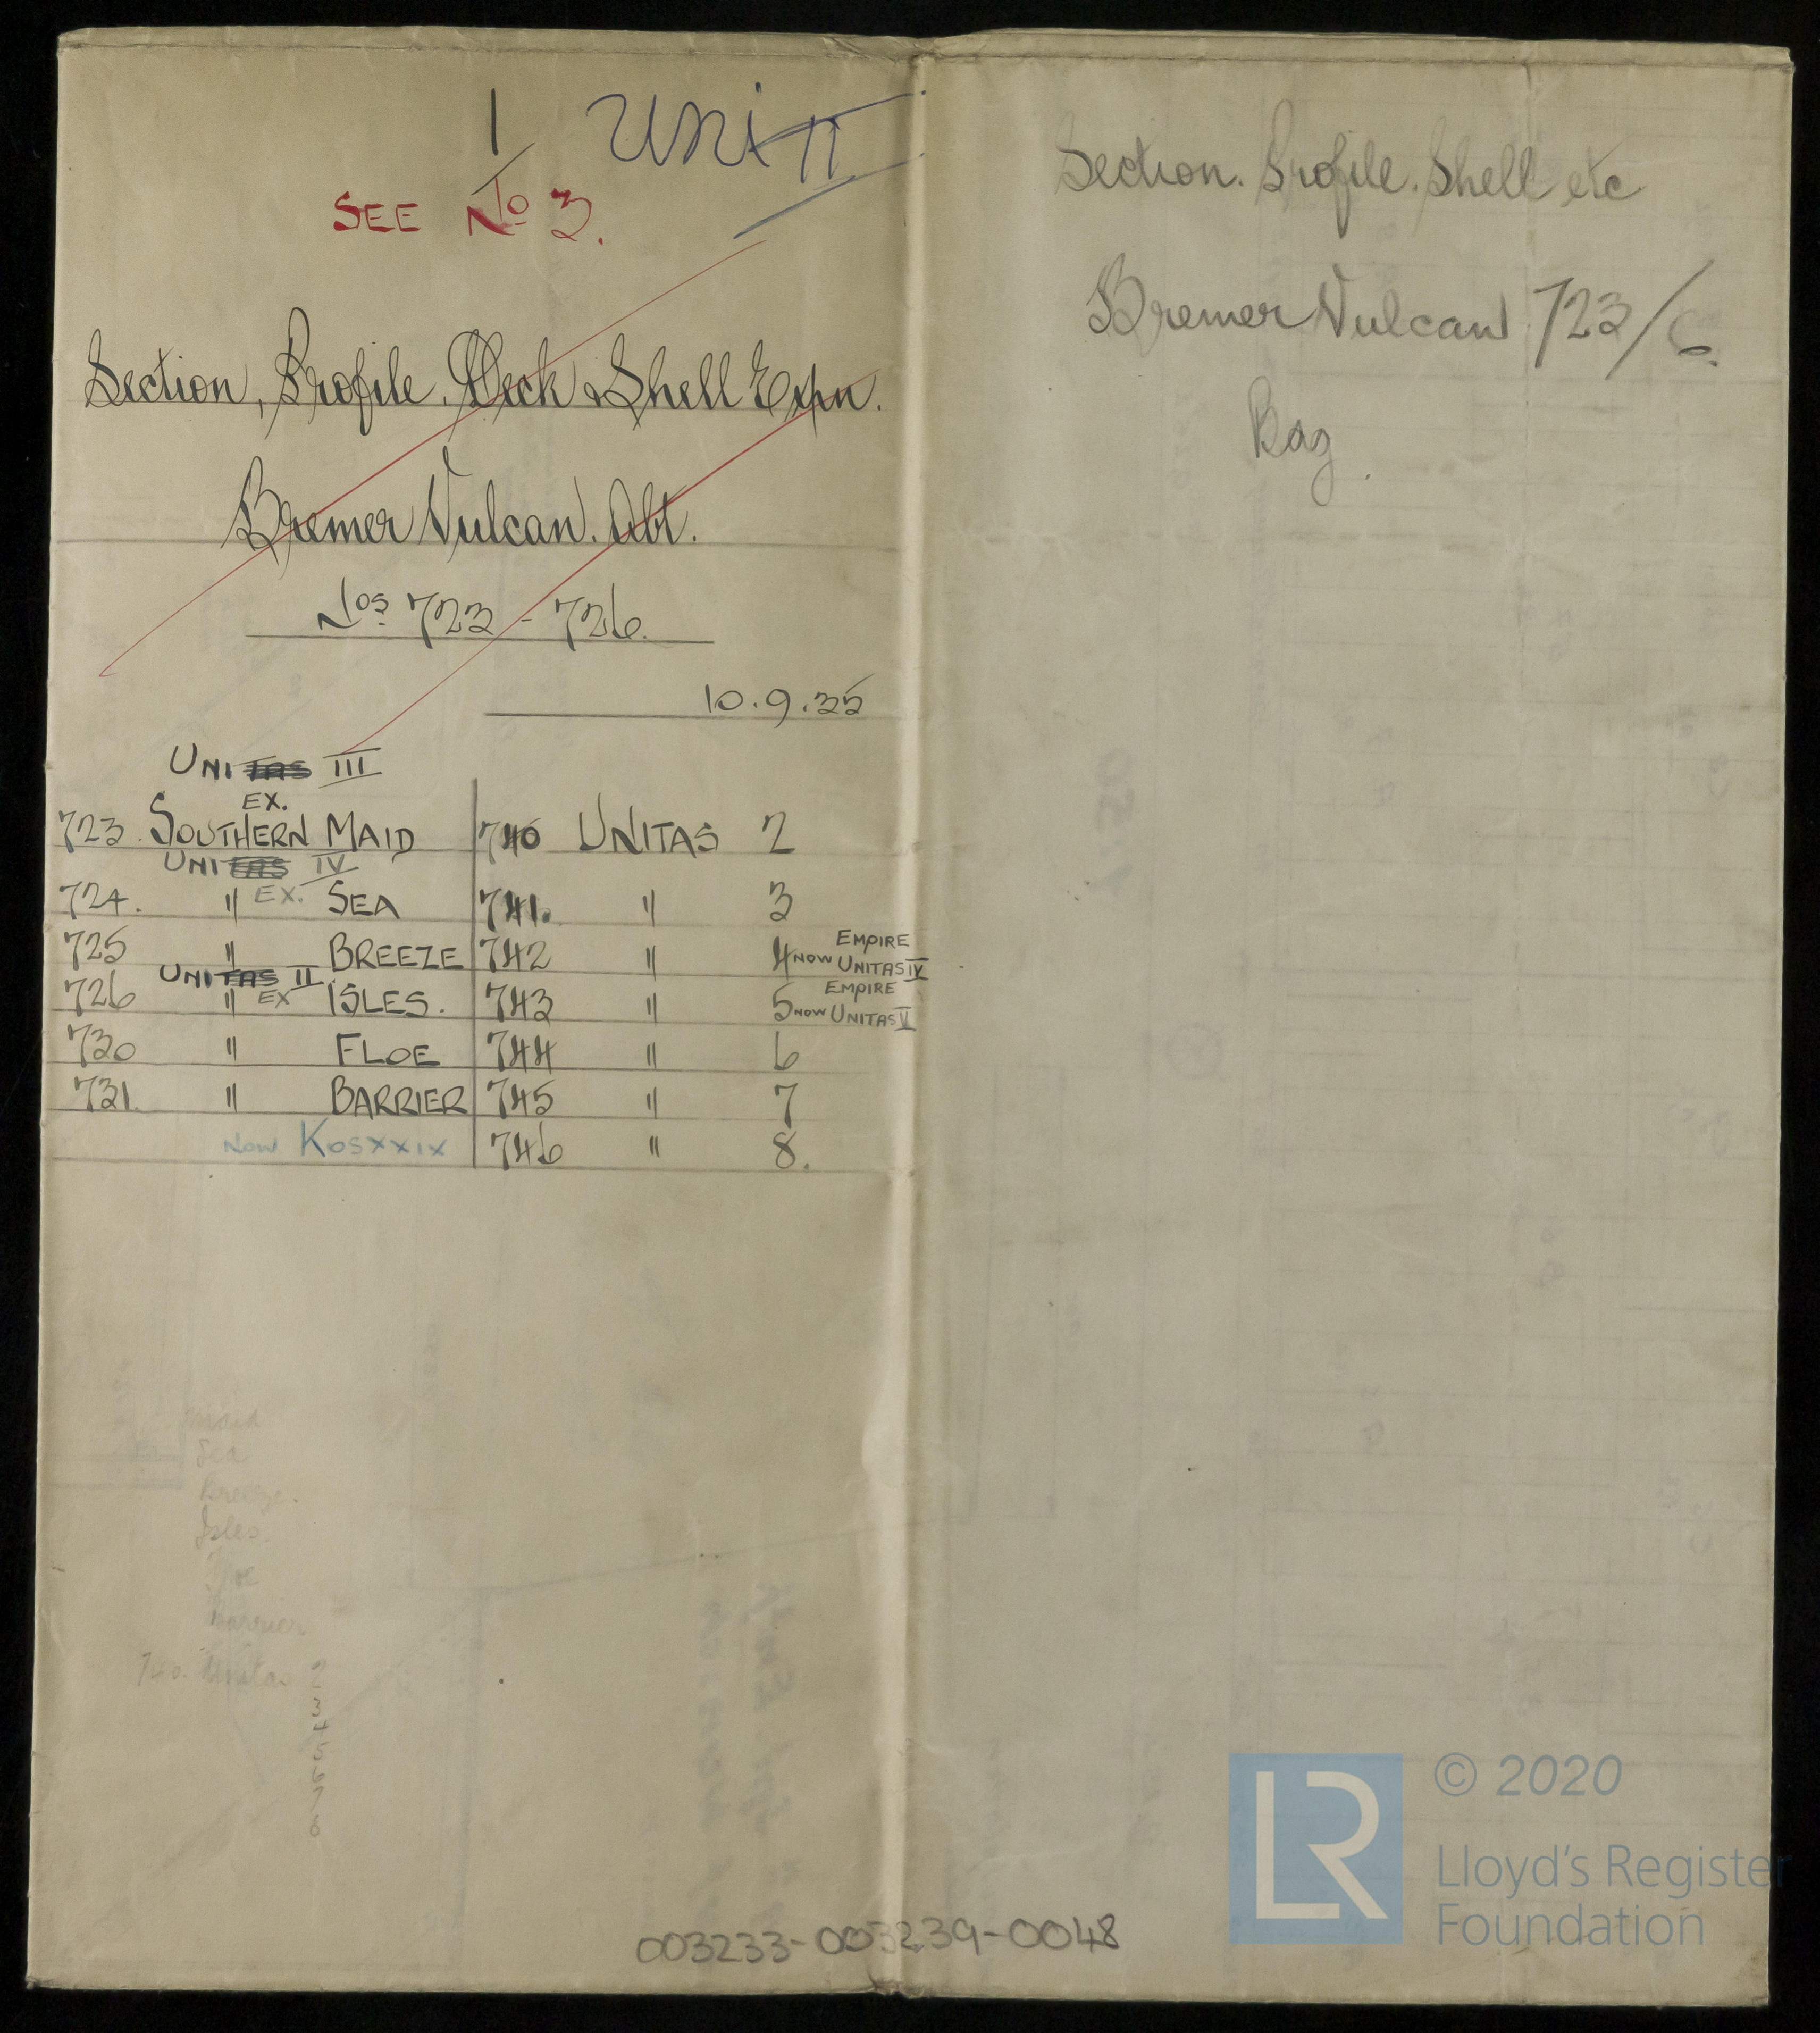 1 UNI II
SEE No 3.
Section, Profile, Deck & Shell Expn.
Bremer Vulcan. Abt.
Nos 723 - 726.
10.9.35
UNITAS III
EX.
723. SOUTHERN MAID 740 UNITAS 2
UNITAS IV
724. " EX. SEA 741. " 3
725 " BREEZE 742 " 4 NOW EMPIRE UNITAS IV
UNITAS II
726 " EX ISLES. 743 " 5 NOW EMPIRE UNITAS V
730 " FLOE 744 " 6
731. " BARRIER 745 " 7
NOW KOSXXIX 746 " 8.
Maid
Sea
Breeze.
Isles.
Barrier
740. Unitas 2
3
4
5
6
7
8
Section. Profile. Shell etc
Bremer Vulcan 723/6.
003233-003239-0048
LR
© 2020
Lloyd's Register
Foundation